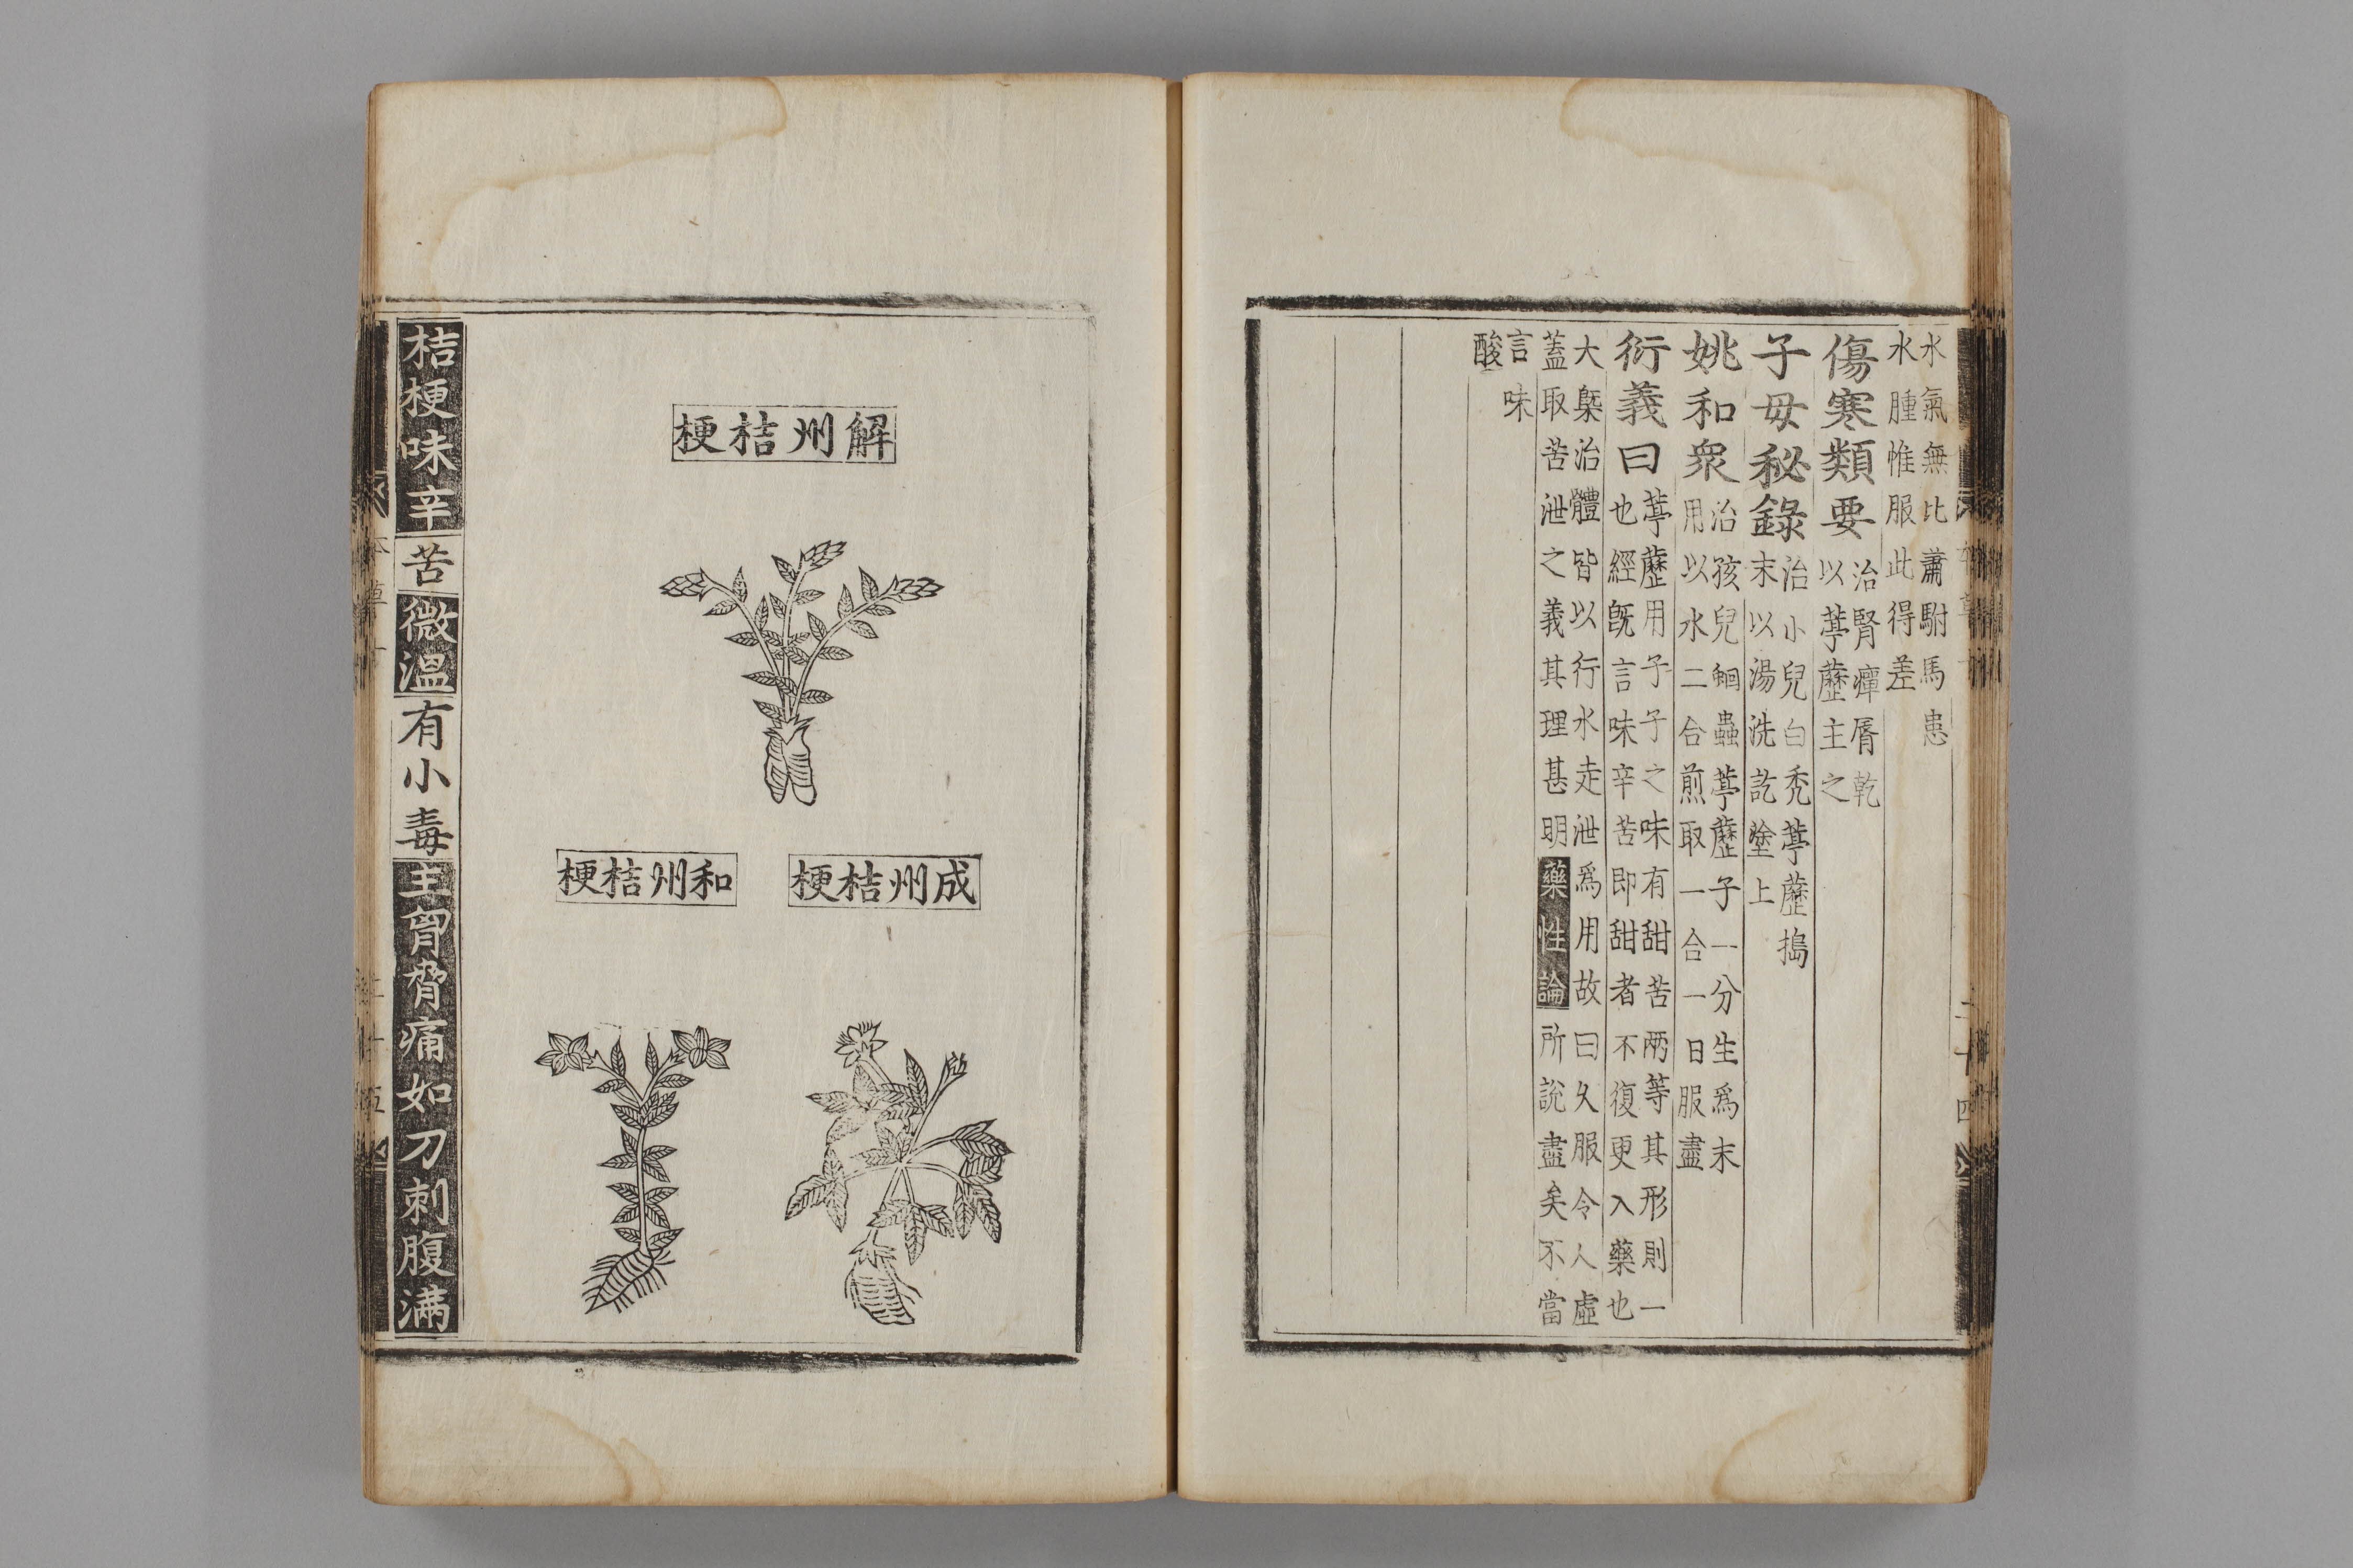 水氣無比蕭駙馬患
水腫惟服此得差
傷寒類要治腎癉脣乾
以葶藶主之
子母秘錄治小兒白禿葶藶搗
末以湯洗訖塗上
姚和衆治孩兒蛔蟲葶藶子一分生爲末
用以水二合煎取一合一日服盡
衍義曰葶藶用子子之味有甜苦兩等其形則一
也經旣言味辛苦即甜者不復更入藥也
大槩治體皆以行水走泄爲用故曰久服令人虛
蓋取苦泄之義其理甚明藥性論所說盡矣不當
言味
酸
解州桔梗
成州桔梗
和州桔梗
桔梗味辛苦微溫有小毒主胷脅痛如刀刺腹滿